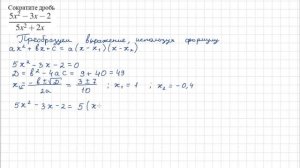 Сократите дробь
5x² − 3x − 2
5x² + 2x
Преобразуем выражение, используя формулу
ax² + bx + c = a(x - x₁)(x - x₂)
5x² - 3x - 2 = 0
D = b² - 4ac = 9 + 40 = 49
x₁,₂ = (-b ± √D)/2a = (3 ± 7)/10 ; x₁ = 1 ; x₂ = -0,4
5x² - 3x - 2 = 5(x